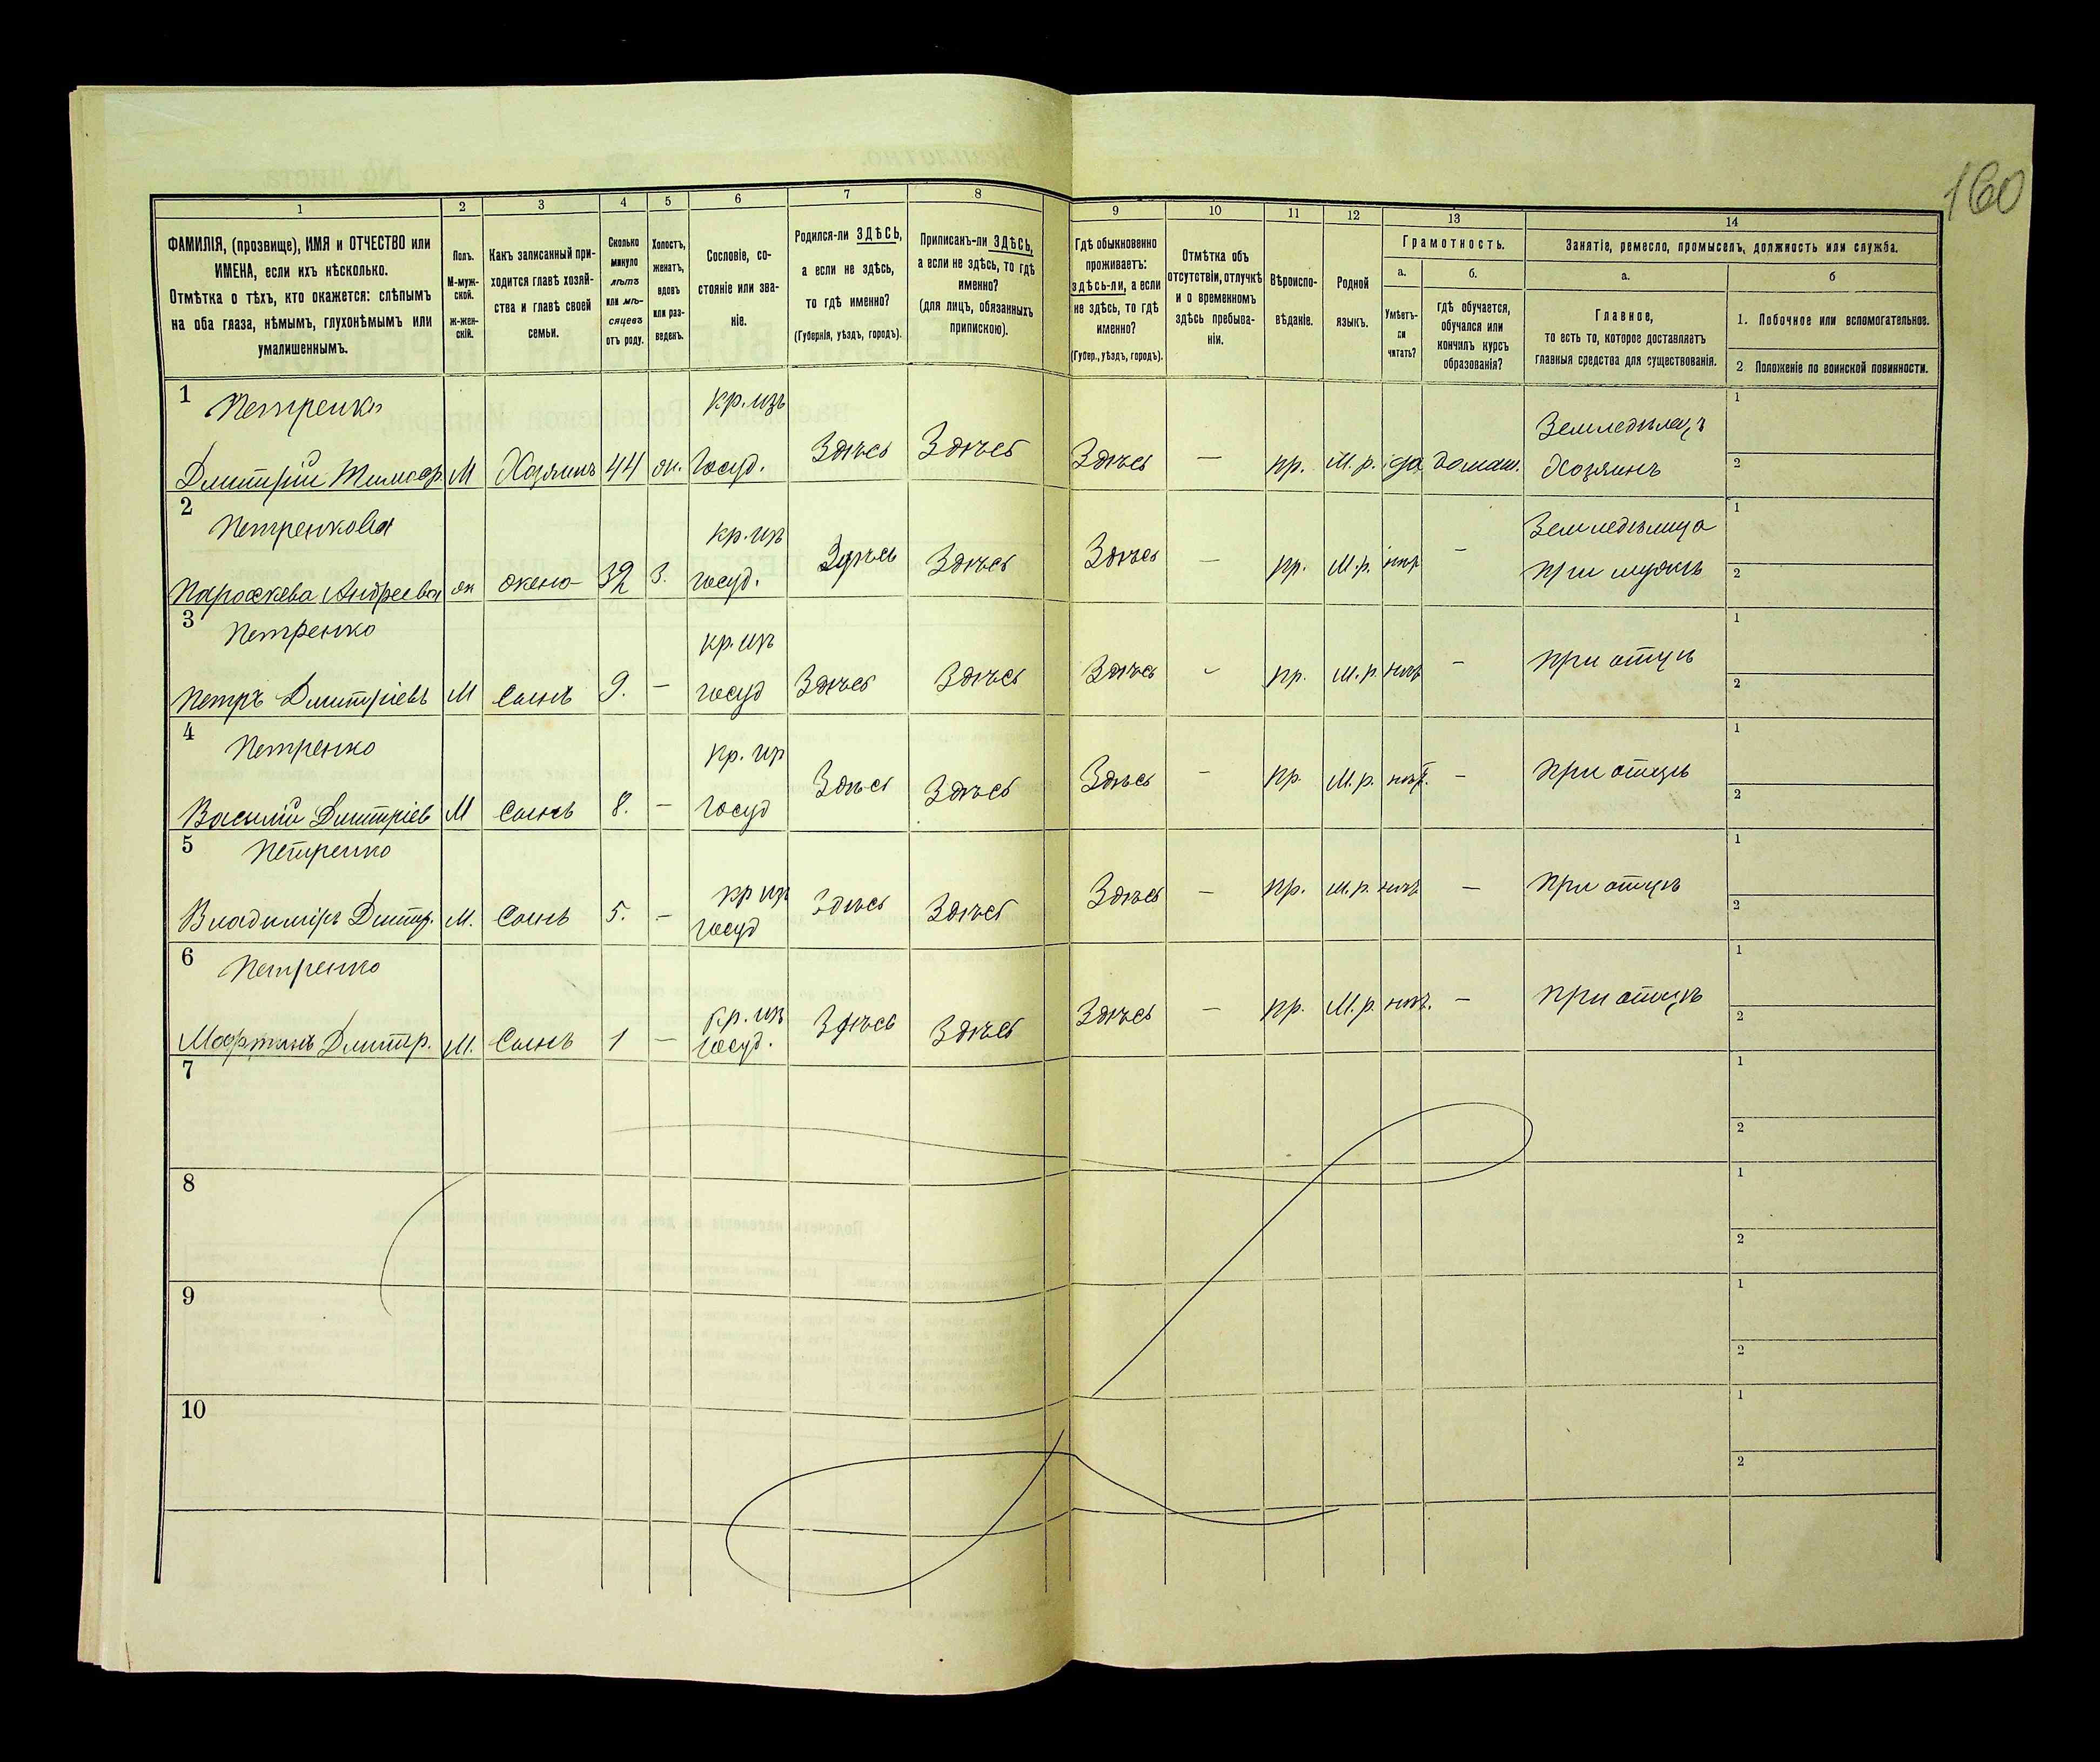 160
1 2 3 4 5 6 7 8 9 10 11 12 13 14
ФАМИЛІЯ, (прозвище), ИМЯ и ОТЧЕСТВО или
ИМЕНА, если ихъ нѣсколько.
Отмѣтка о тѣхъ, кто окажется: слѣпымъ
на оба глаза, нѣмымъ, глухонѣмымъ или
умалишеннымъ.
Полъ.
М-муж-
ской.
ж-жен-
скій.
Какъ записанный при-
ходится главѣ хозяй-
ства и главѣ своей
семьи.
Сколько
минуло
лѣтъ
или мѣ-
сяцевъ
отъ роду.
Холостъ,
женатъ,
вдовъ
или раз-
веденъ.
Сословіе, со-
стояніе или зва-
ніе.
Родился-ли ЗДѢСЬ,
а если не здѣсь,
то гдѣ именно?
(Губернія, уѣздъ, городъ).
Приписанъ-ли ЗДѢСЬ,
а если не здѣсь, то гдѣ
именно?
(для лицъ, обязанныхъ
припискою).
Гдѣ обыкновенно
проживаетъ:
здѣсь-ли, а если
не здѣсь, то гдѣ
именно?
(Губер., уѣздъ, городъ).
Отмѣтка объ
отсутствіи, отлучкѣ
и о временномъ
здѣсь пребыва-
ніи.
Вѣроиспо-
вѣданіе.
Родной
языкъ.
Грамотность.
а.
Умѣетъ-
ли
читать?
б.
гдѣ обучается,
обучался или
кончилъ курсъ
образованія?
Занятіе, ремесло, промыселъ, должность или служба.
а.
Главное,
то есть то, которое доставляетъ
главныя средства для существованія.
б
1. Побочное или вспомогательное.
2 Положеніе по воинской повинности.
1 Петренко кр. изъ Земледѣлецъ 1
Дмитрій Тимоф. М Хозяинъ 44 ж. Госуд. Здѣсь Здѣсь Здѣсь — пр. М. р. да домаш. Хозяинъ 2
2 Петренкова кр. изъ Земледѣлица 1
Параскева Андреевна ж жена 32 З. госуд. Здѣсь Здѣсь Здѣсь — пр. М. р. нѣт — при мужѣ 2
3 Петренко кр. изъ 1
Петръ Дмитріевъ М Сынъ 9. — госуд Здѣсь Здѣсь Здѣсь - пр. М. р. нѣт — при отцѣ 2
4 Петренко кр. из 1
Василій Дмитріев М Сынъ 8. — Госуд Здѣсь Здѣсь Здѣсь — пр М. р. нѣт. — при отцѣ 2
5 Петренко кр изъ 1
Владиміръ Дмитр. М. Сынъ 5. — госуд Здѣсь Здѣсь Здѣсь — пр. М. р. нѣт — при отцѣ 2
6 Петренко кр. изъ 1
Дмитр. М. Сынъ 1 — госуд. Здѣсь Здѣсь Здѣсь — пр. М. р. нѣт. — при отцѣ 2
7 1
2
8 1
2
9 1
2
10 1
2